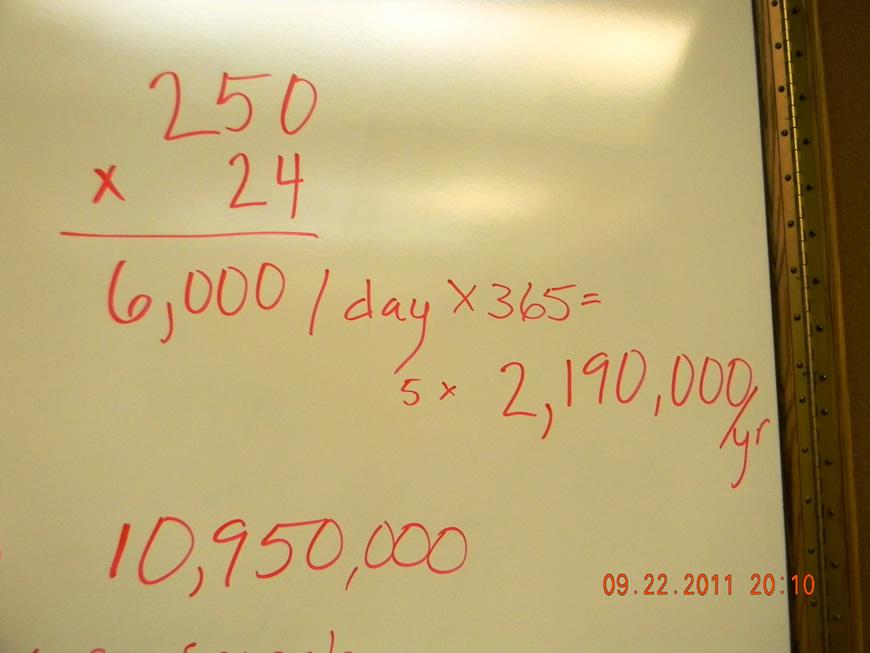 250
x 24
6,000 / day x 365 =
5 x 2,190,000/yr
10,950,000
09.22.2011 20:10